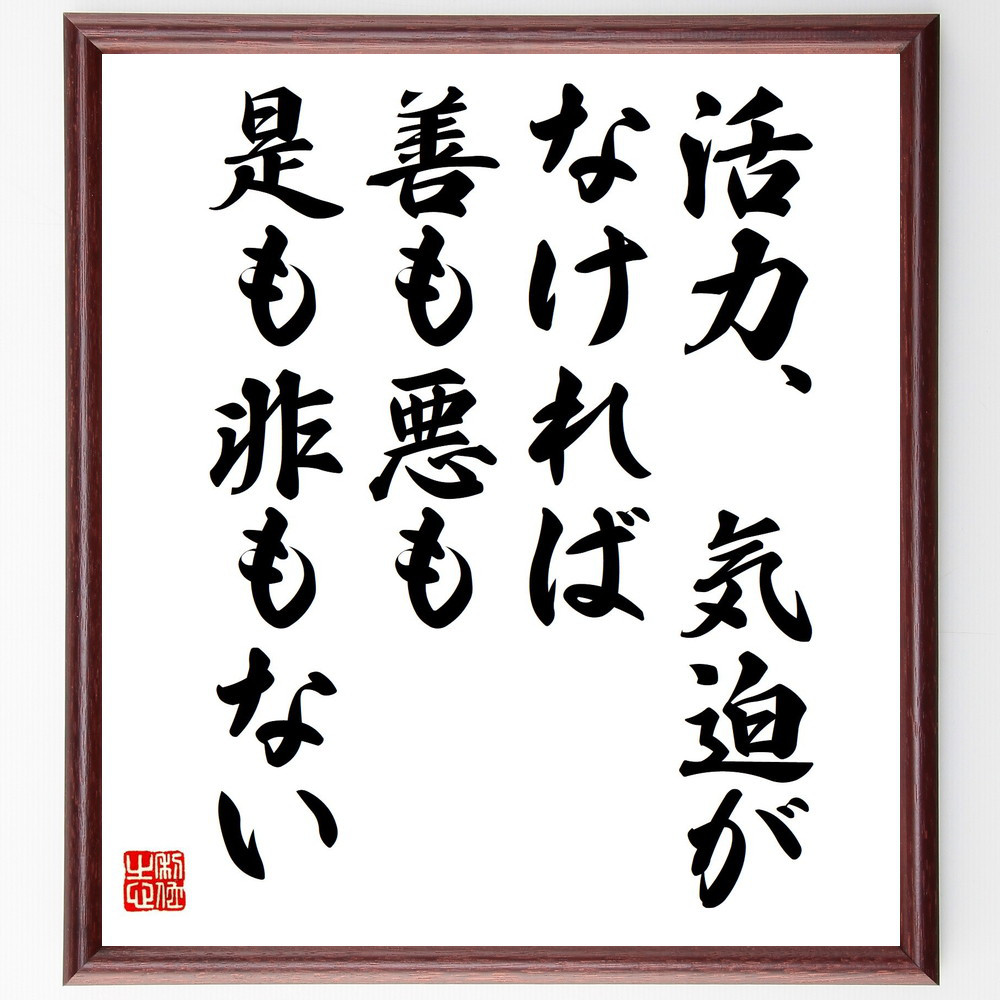 活力、　気迫が
なければ
善も悪も
是も非もない